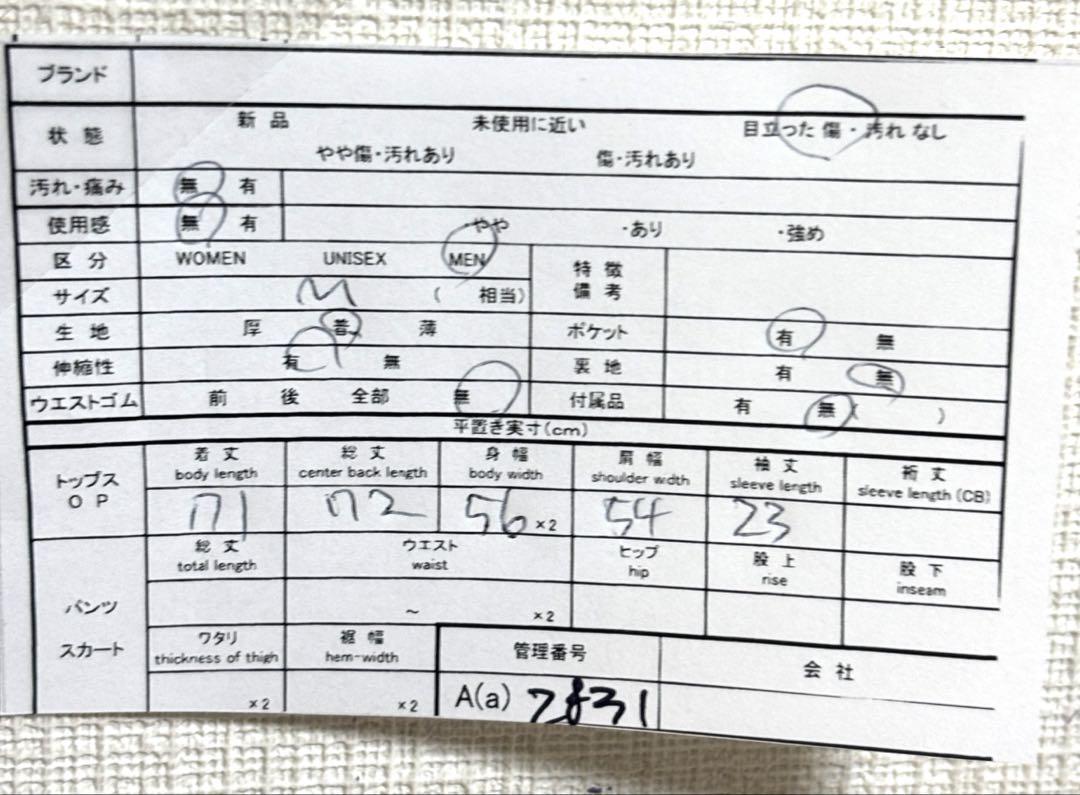 ブランド
状態 新品 未使用に近い 目立った傷・汚れなし
やや傷・汚れあり 傷・汚れあり
汚れ・痛み 無 有
使用感 無 有 ・やや ・あり ・強め
区分 WOMEN UNISEX MEN 特徴
備考
サイズ M ( 相当)
生地 厚 普 薄 ポケット 有 無
伸縮性 有 無 裏地 有 無
ウエストゴム 前 後 全部 無 付属品 有 無( )
平置き実寸(cm)
トップス
OP
着丈 総丈 身幅 肩幅 袖丈 裄丈
body length center back length body width shoulder width sleeve length sleeve length (CB)
71 72 56 ×2 54 23
パンツ
スカート
総丈 ウエスト ヒップ 股上 股下
total length waist hip rise inseam
~ ×2
ワタリ 裾幅 管理番号 会社
thickness of thigh hem-width
×2 ×2 A(a) 2831